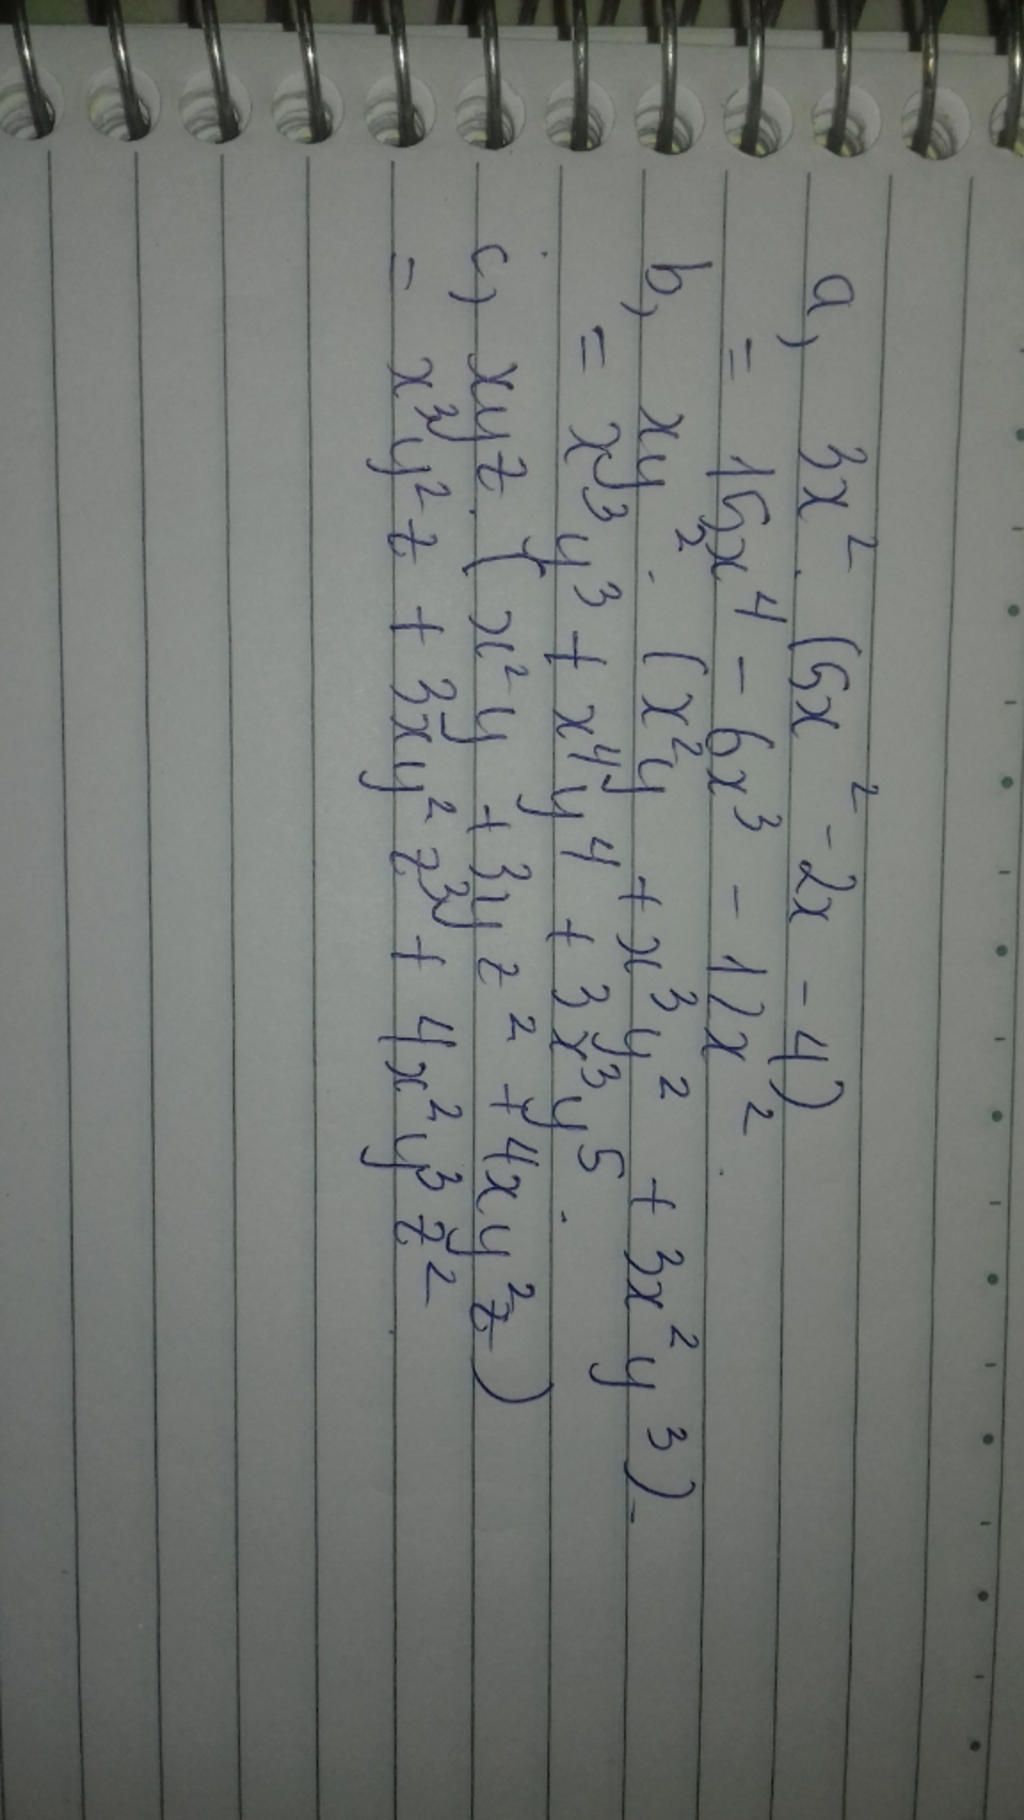 a, 3x². (5x² - 2x - 4)
= 15x⁴ - 6x³ - 12x².
b, xy². (x²y + x³y² + 3x²y³).
= x³y³ + x⁴y⁴ + 3x³y⁵.
c, xyz. (x²y + 3yz² + 4xy²z)
= x³y²z + 3xy²z³ + 4x²y³z².